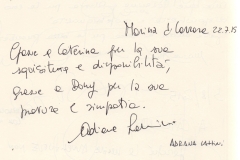 Marina di Carrara 22.7.15
Grazie a Caterina per la sua
squisitezza e disponibilità,
grazie a Dony per la sua
premura e simpatia.
Adriana
ADRIANA